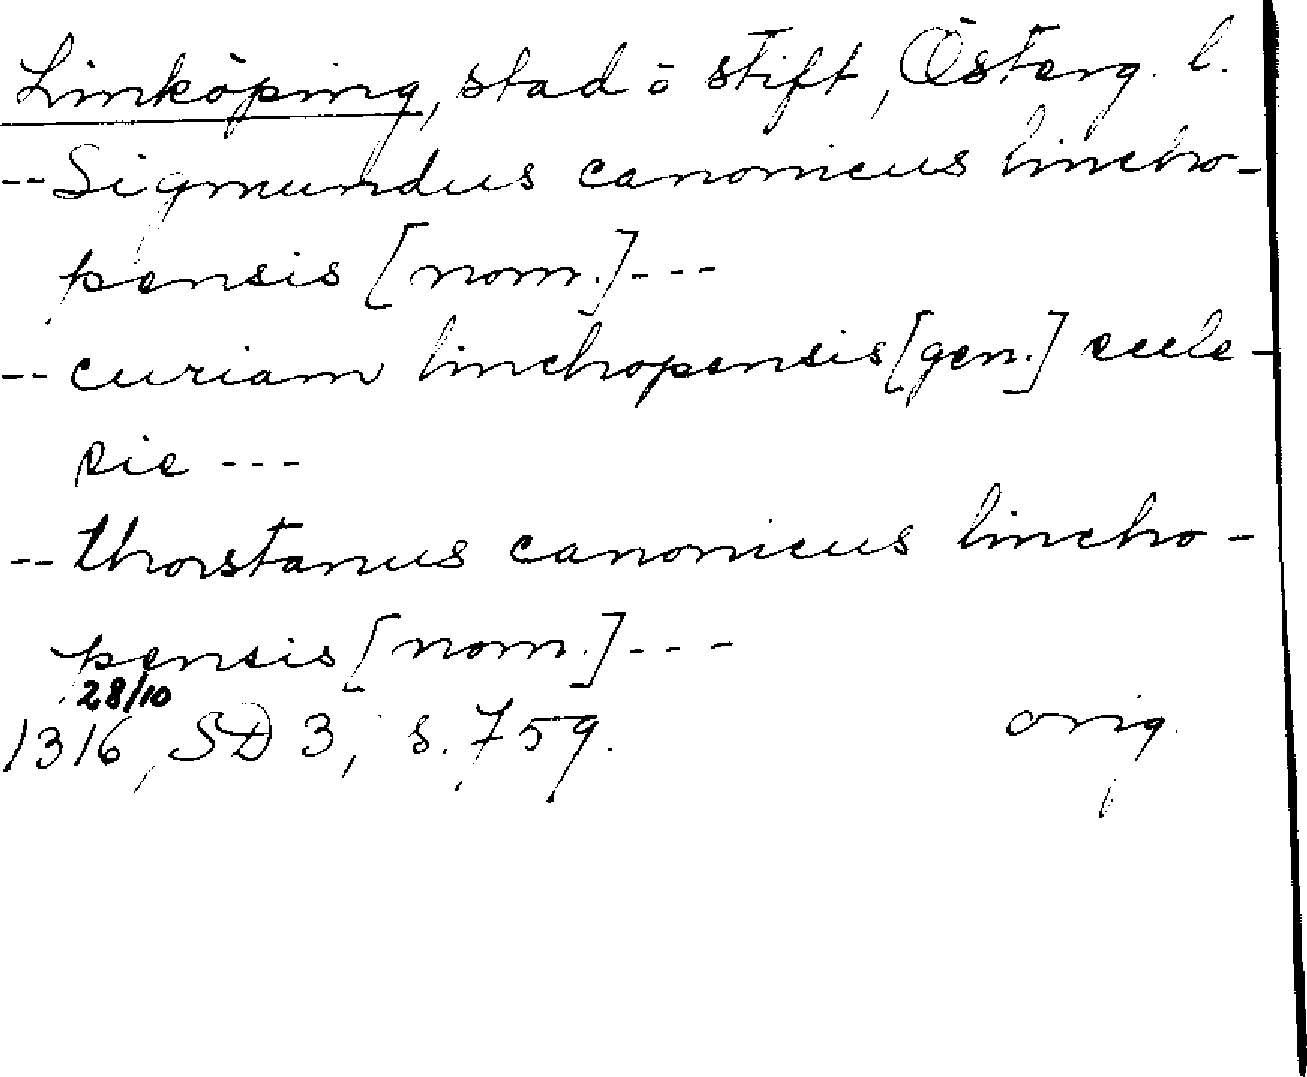 Linköping, stad o stift, Österg. l.
-- Sigmundus canonicus lincho-
pensis [nom.] ---
-- curiam linchopensis [gen.] eccle-
sie ---
-- thorstanus canonicus lincho-
pensis [nom.] ---
28/10
1316, SD 3, s. 759. orig.